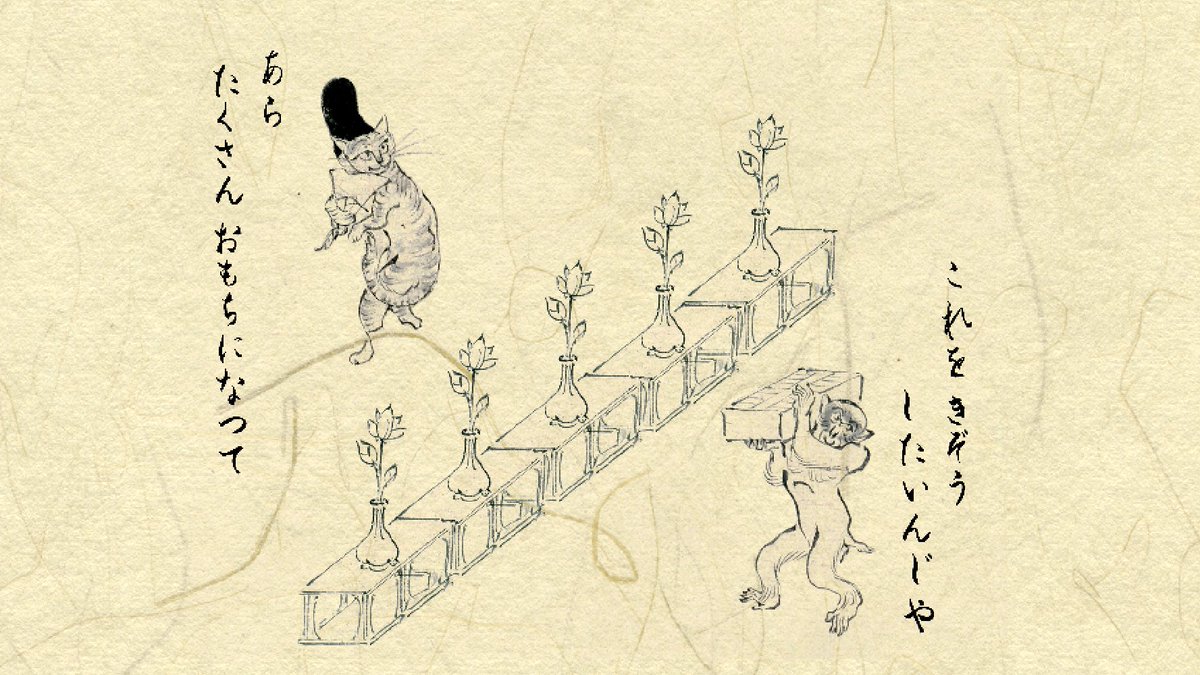 これを きぞう
したいんじや
あら
たくさん おもちになつて